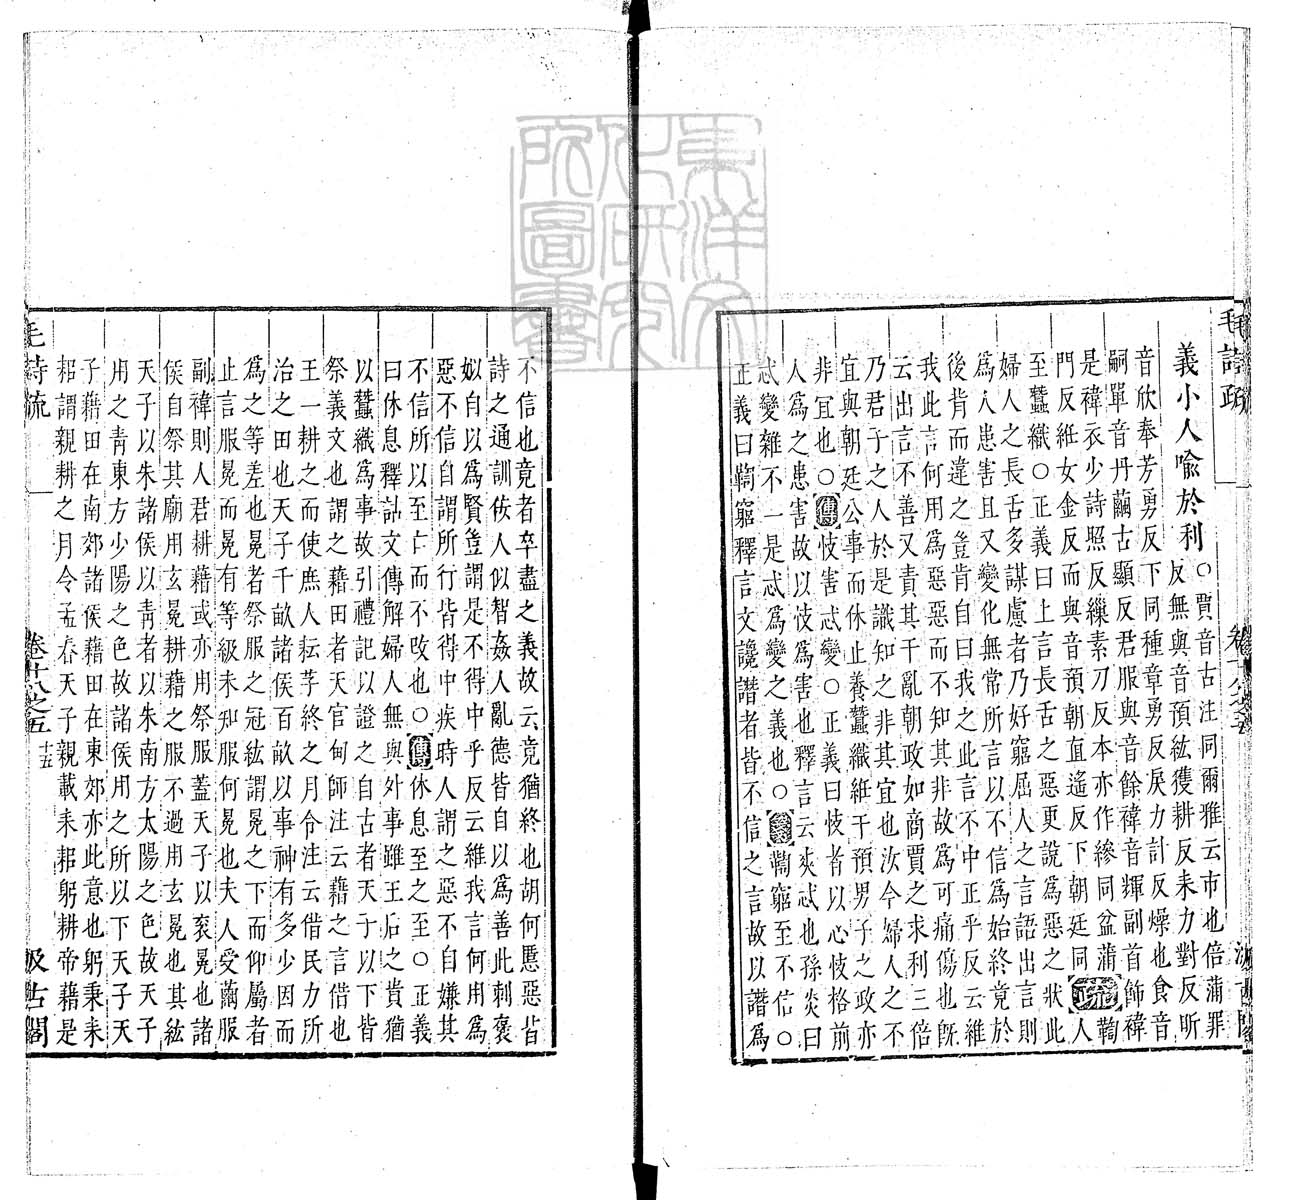 毛詩疏
卷十八之五
義小人喻於利
○賈音古注同爾雅云市也倍蒲罪
反無與音預紘獲耕反耒力對反昕
音欣奉芳勇反下同種章勇反戾力計反燥也食音
嗣單音丹繭古顯反君服與音餘褘音輝副首飾褘
是褘衣少詩照反繅素刀反本亦作縿同盆蒲疏鞫
門反紝女金反而與音預朝直遙反下朝廷同人
至蠶織○正義曰上言長舌之惡更說爲惡之狀此
婦人之長舌多謀慮者乃好窮屈人之言語出言則
爲人患害且又變化無常所言以不信爲始終竟於
後背而違之豈肯自曰我之此言不中正乎反云維
我此言何用爲惡惡而不知其非故爲可痛傷也旣
云出言不善又責其干亂朝政如商賈之求利三倍
乃君子之人於是識知之非其宜也汝今婦人之不
宜與朝廷公事而休止養蠶織紝干預男子之政亦
非宜也○傳忮害忒變○正義曰忮者以心忮格前
人爲之患害故以忮爲害也釋言云爽忒也孫炎曰
忒變雜不一是忒爲變之義也○箋鞫窮至不信○
正義曰鞫窮釋言文讒譖者皆不信之言故以譖爲
不信也竟者卒盡之義故云竟猶終也胡何慝惡皆
詩之通訓佞人似智姦人亂德皆自以爲善此刺褒
姒自以爲賢豈謂是不得中乎反云維我言何用爲
惡不信自謂所行皆得中疾時人謂之惡不自嫌其
不信所以至亡而不改也○傳休息至之至○正義
曰休息釋詁文傳解婦人無與外事雖王后之貴猶
以蠶織爲事故引禮記以證之自古者天子以下皆
祭義文也謂之藉田者天官甸師注云藉之言借也
王一耕之而使庶人耘芓終之月令注云借民力所
治之田也天子千畝諸侯百畝以事神有多少因而
爲之等差也冕者祭服之冠紘謂冕之下而仰屬者
止言服冕而冕有等級未知服何冕也夫人受繭服
副褘則人君耕藉或亦用祭服蓋天子以衮冕也諸
侯自祭其廟用玄冕耕藉之服不過用玄冕也其紘
天子以朱諸侯以靑者以朱南方太陽之色故天子
用之靑東方少陽之色故諸侯用之所以下天子天
子藉田在南郊諸侯藉田在東郊亦此意也躬秉耒
耜謂親耕之月令孟春天子親載耒耜躬耕帝藉是
毛詩疏
卷十八之五
汲古閣